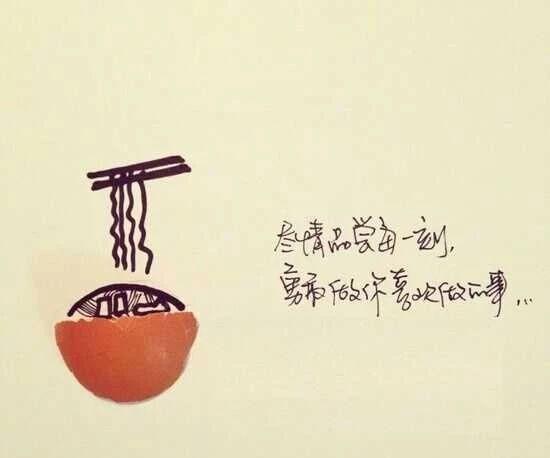 尽情品尝每一刻,
勇敢做你喜欢做的事...